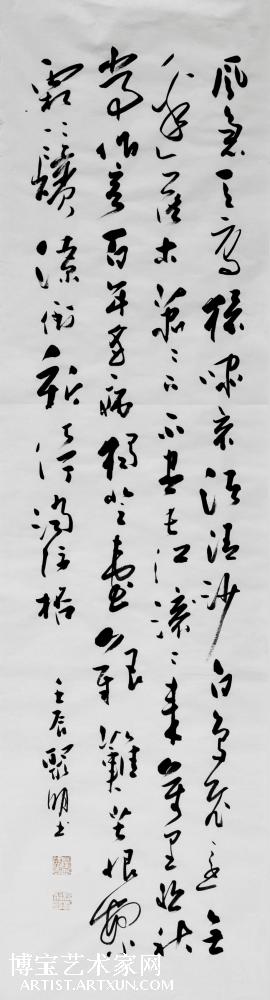 風急天高猿嘯哀渚清沙白鳥飛迴無
邊落木蕭〻下不盡長江滾〻來萬里悲秋
常作客百年多病獨登臺艱難苦恨繁
霜鬢潦倒新停濁酒杯
壬辰明書
博宝艺术家网
ARTIST.ARTXUN.COM